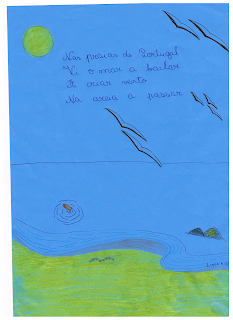 Nas praias de Portugal
Vi o mar a bailar
E criar vento
Na areia a passar